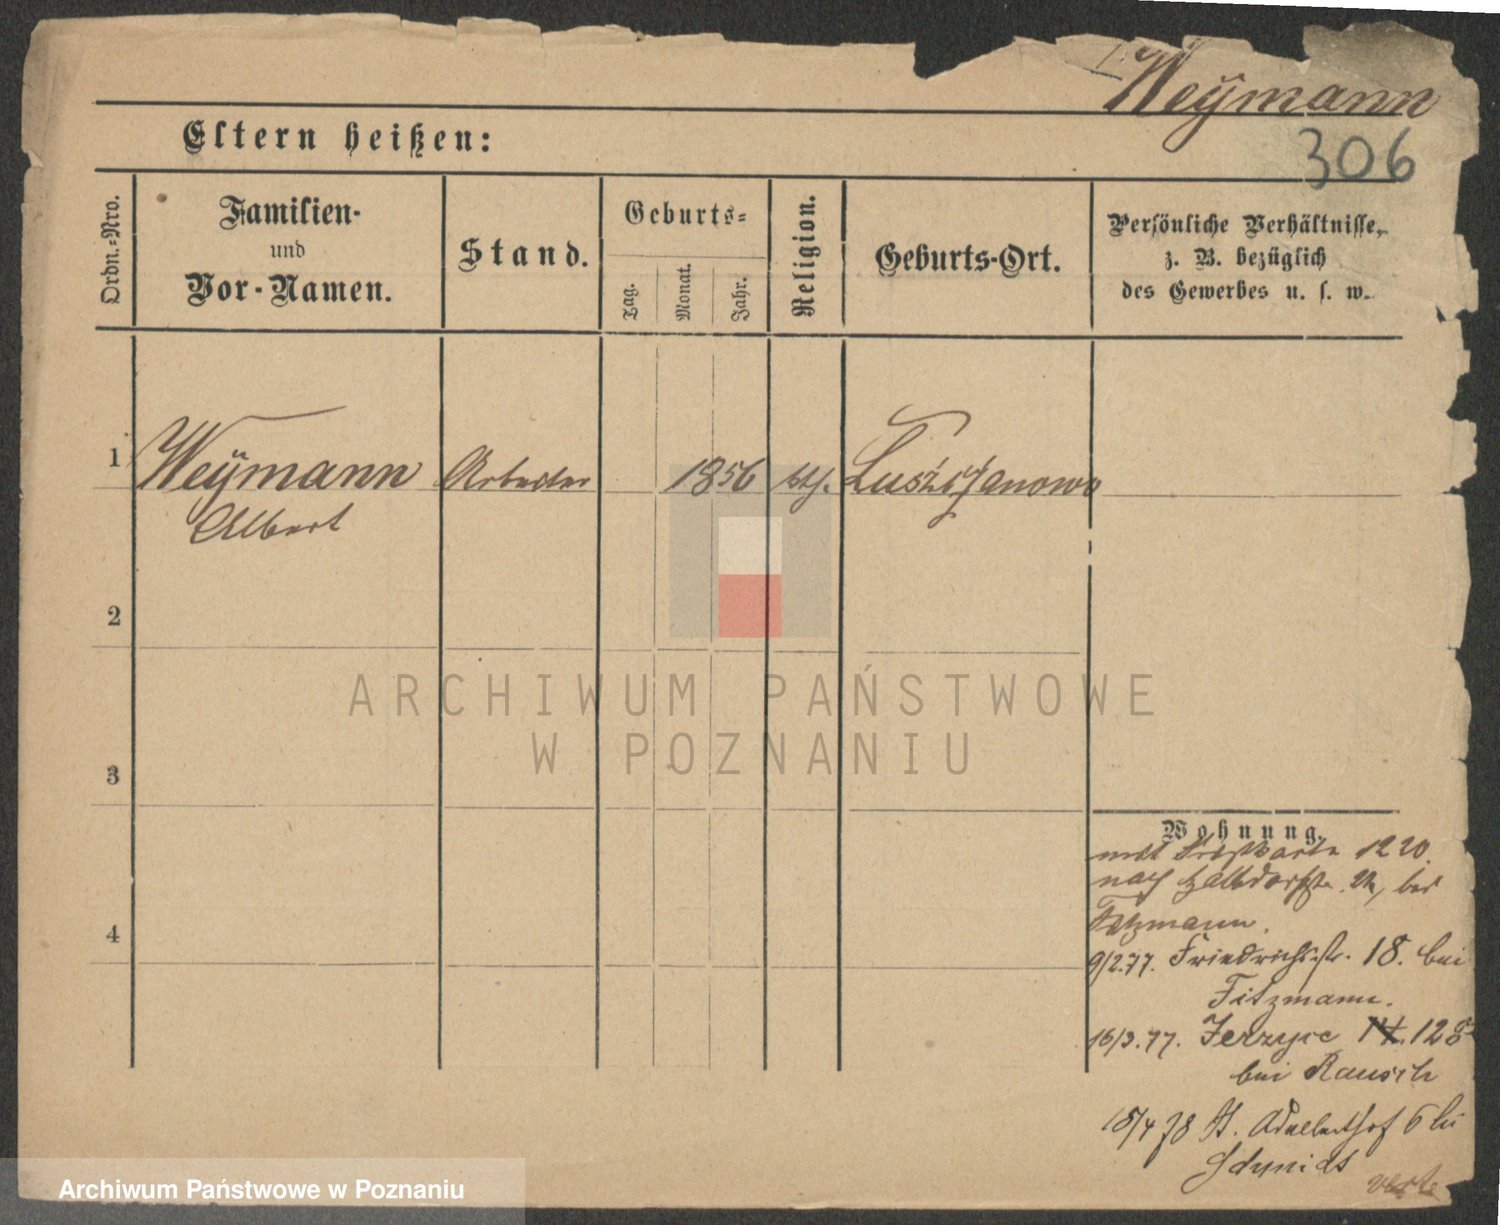 Weÿmann
306
Eltern heißen:
Ordn.=Nro.
Familien-
und
Vor-Namen.
Stand.
Geburts=
Tag.
Monat.
Jahr.
Religion.
Geburts-Ort.
Persönliche Verhältnisse,
z. B. bezüglich
des Gewerbes u. s. w.
1
Weÿmann
Albert
Arbeiter
1856
kth.
2
ARCHIWUM PAŃSTWOWE
W POZNANIU
3
Wohnung.
1220.
nach Halbdorfstr. bei
4
9/2.77. Friedrichsstr. 18. bei
Fitzmann.
16/3.77. Jerzyce 128
bei Rausch
18/4 78 St. Adalberthof 6 bei
verte
Archiwum Państwowe w Poznaniu